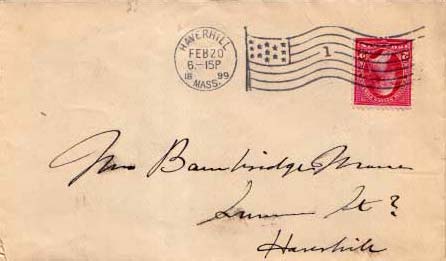 HAVERHILL
FEB 20
6-15P
18 99
MASS.
1
Mrs Bainbridge
St ?
Haverhill